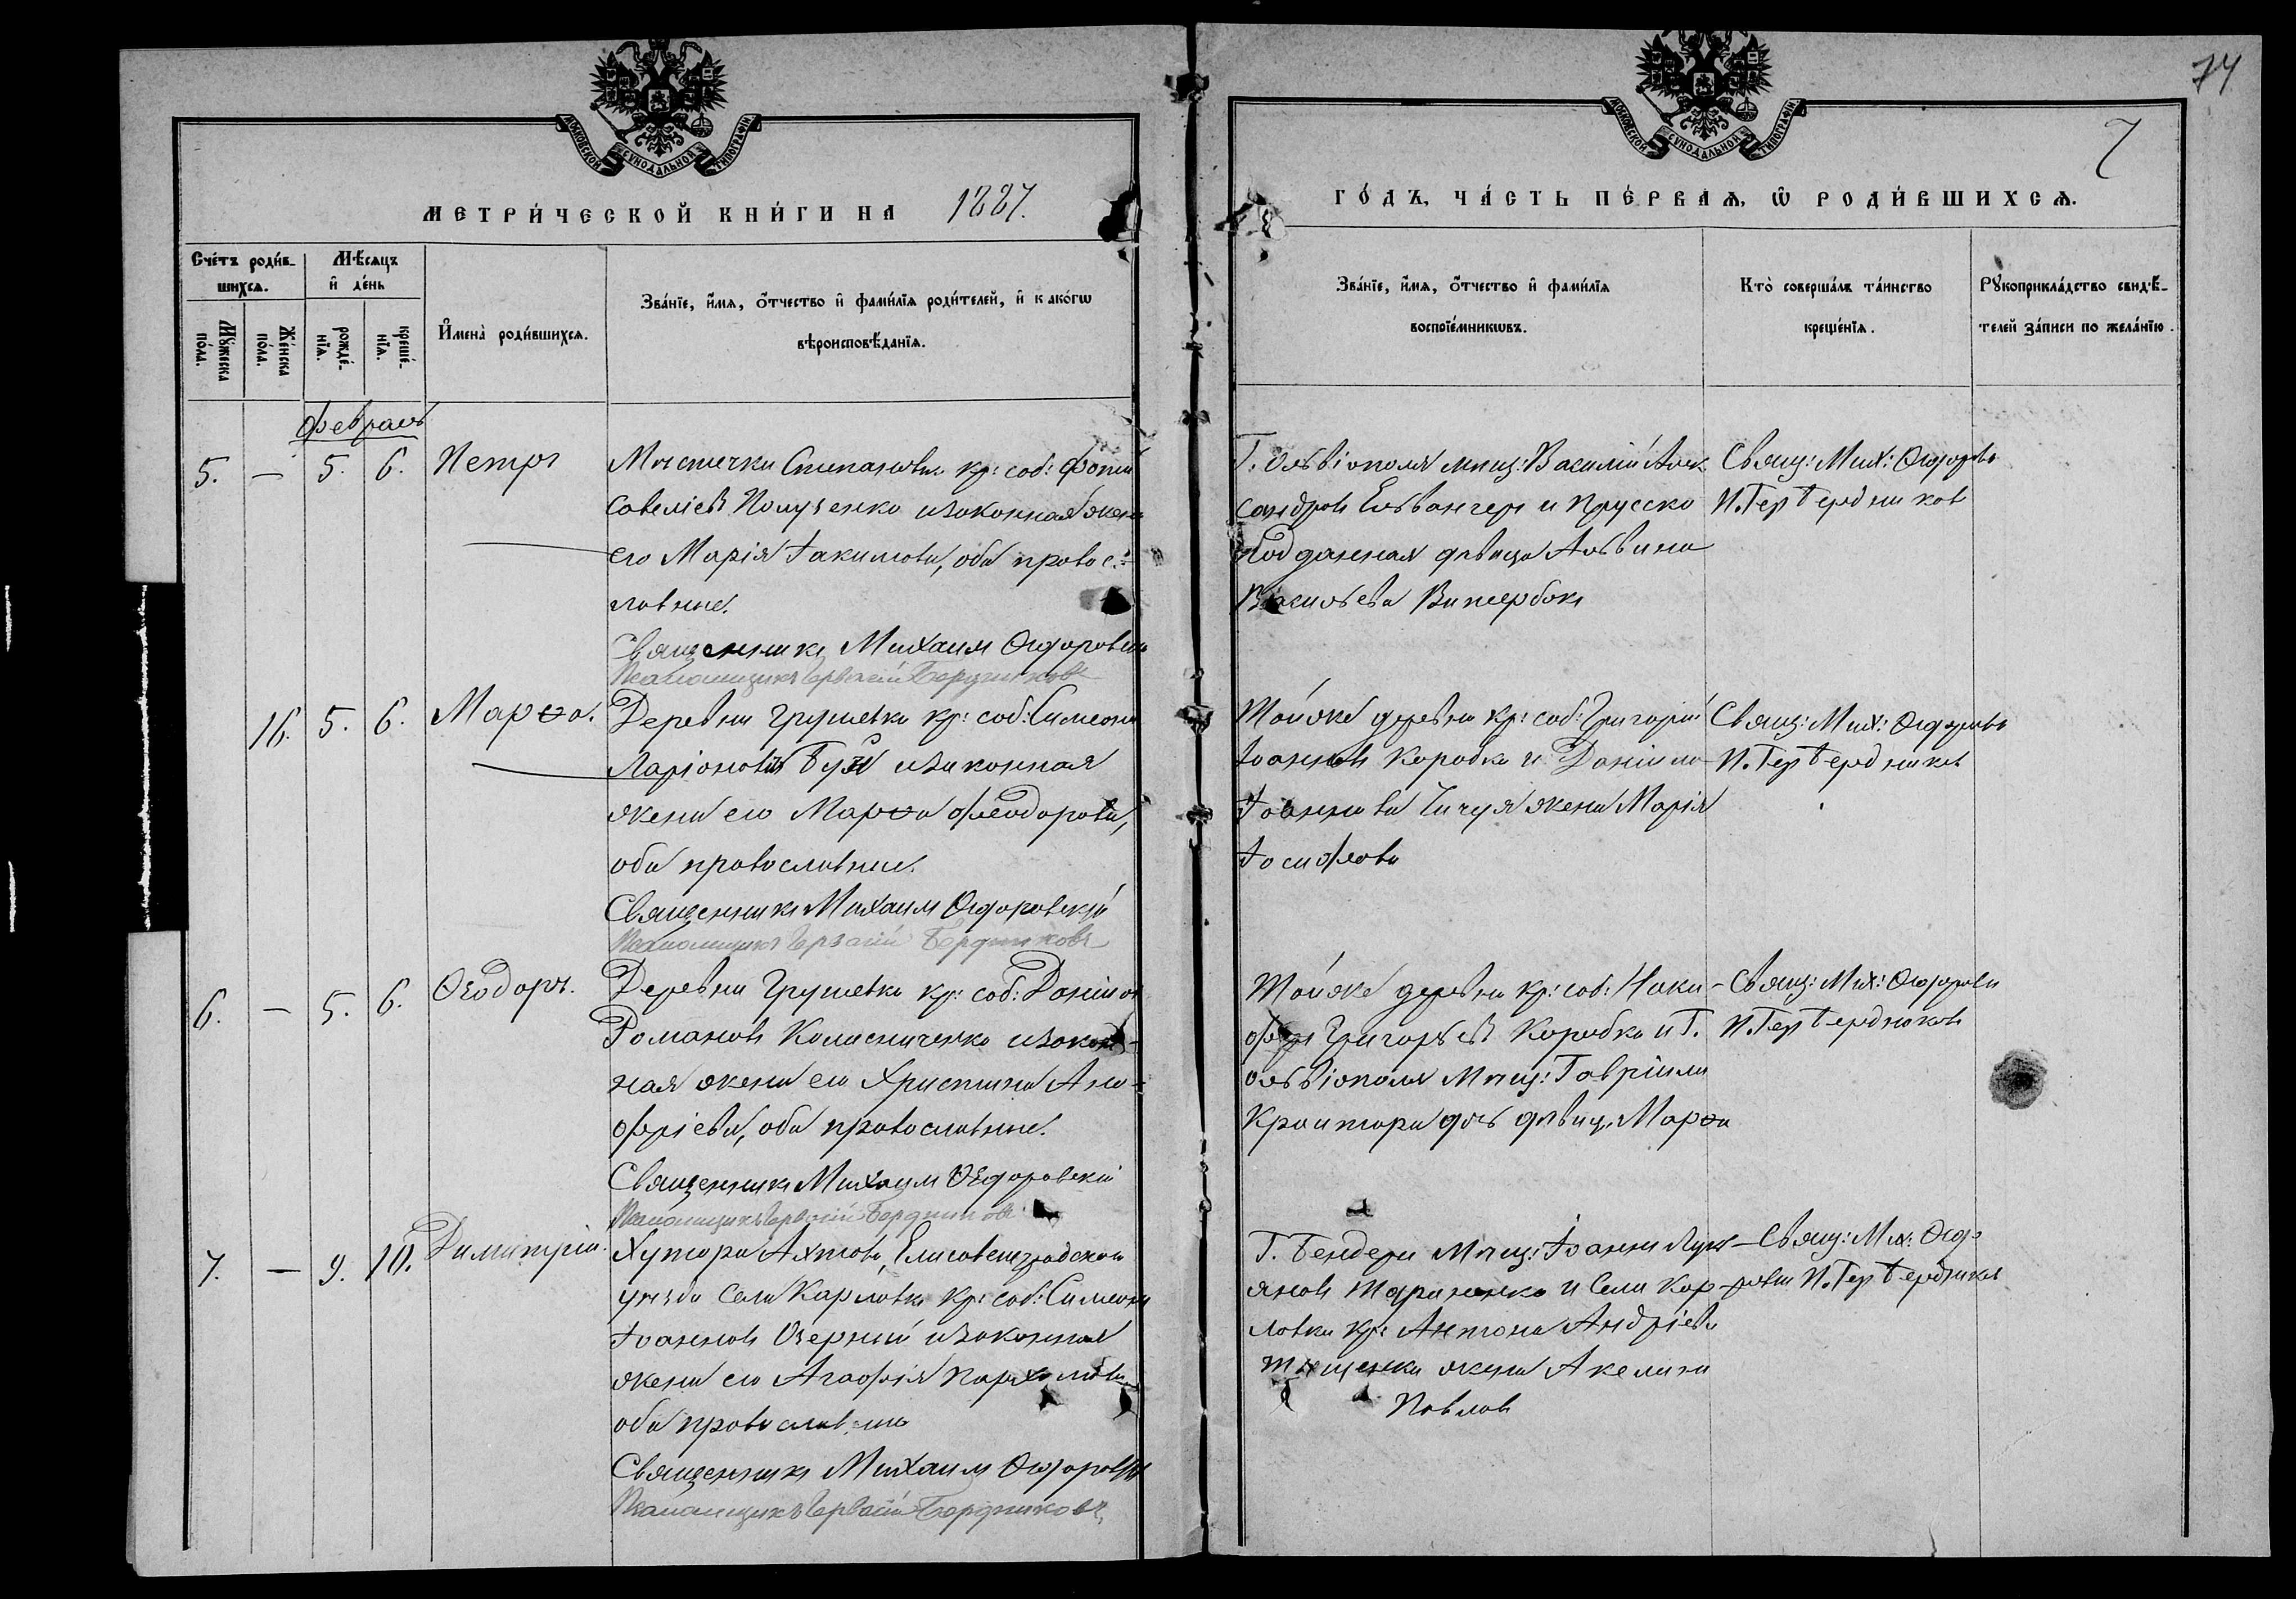 74
7
МОСКОВСКОЙ СѴНОДАЛЬНОЙ ТИПОГРАФІИ
МОСКОВСКОЙ СѴНОДАЛЬНОЙ ТИПОГРАФІИ
МЕТРИ́ЧЕСКОЙ КНИ́ГИ НА 1887.
ГО́ДЪ, ЧА́СТЬ ПЕ́РВАѦ, Ѡ РОДИ́ВШИХСѦ.
Сче́тъ роди́в-
шихсѧ.
Мѣ́сѧцъ
и҆ де́нь
Мꙋ́жеска
по́ла.
Же́нска
по́ла.
рожде́-
нїѧ.
креще́-
нїѧ.
И҆мена̀ роди́вшихсѧ.
Зва́нїе, и҆́мѧ, ѻ҆́тчество и҆ фами́лїѧ роди́телей, и҆ како́гѡ
вѣроисповѣ́данїѧ.
Зва́нїе, и҆́мѧ, ѻ҆́тчество и҆ фами́лїѧ
воспрїе́мникѡвъ.
Кто̀ соверша́лъ та́инство
креще́нїѧ.
Рꙋкоприкла́дство свидѣ́-
телей за́писи по жела́нїю.
Февраль
5. — 5. 6. Петръ
Мѣстечка Степановки кр: соб: Фотій
Савеліевъ Полученко изаконная жена
его Марія Іакимова, оба правос-
лавные.
Священникъ Михаилъ Ѳедоровскій
Псаломщикъ Гервасій Бердниковъ
Г. Ольвіополя мѣщ: Василій Алек
сандровъ и Прусско
подданная дѣвица Альвина
Васильева
Свящ: Мих: Ѳедоровс
П. Гер Бердниковъ
16. 5. 6. Марѳа.
Деревни Грушевки кр: соб: Симеонъ
Ларіоновъ изаконная
жена его Марѳа Феодорова,
оба православные.
Священникъ Михаилъ Ѳедоровскій
Псаломщикъ Гервасій Бердниковъ
Тойже деревни кр: соб: Григорій
Іоанновъ Коробка и Даніила
Іоаннова Чичуя жена Марія
Іосифова
Свящ: Мих: Ѳедоровс
П. Гер Бердниковъ
6. — 5. 6. Ѳеодоръ.
Деревни Грушевки кр: соб: Даніилъ
Романовъ Колисниченко изакон-
ная жена его Христина Ано-
фріева, оба православные.
Священникъ Михаилъ Ѳедоровскій
Псаломщикъ Гервасій Бердниковъ
Тойже деревни кр: соб: Ники-
форъ Григорьевъ Коробка и Г.
Ольвіополя Мѣщ: Гавріила
дочь дѣвица Марѳа
Свящ: Мих: Ѳедоровс
П. Гер Бердниковъ
7. — 9. 10. Димитрій.
Хутора Ахтова, Елисаветградскаго
уѣзда Села Карловки кр: соб: Симеонъ
Іоанновъ Озерный изаконная
жена его Агафія Пархомова
оба православные
Священникъ Михаилъ Ѳедоровскій
Псаломщикъ Гервасій Бердниковъ
Г. Бендеры Мѣщ: Іоаннъ Лукі-
яновъ и Села Кар-
ловки кр: Антона Андріева
жена Акелина
Павлов
Свящ: Мих: Ѳедо-
ровс П. Гер Бердниковъ